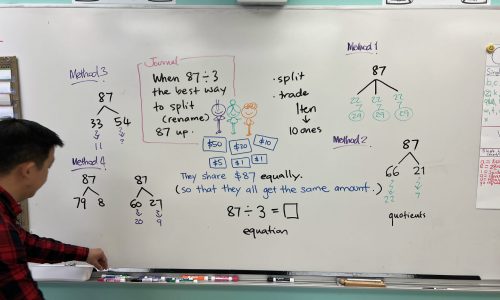 Journal
When 87 ÷ 3
the best way
to split
(rename)
87 up.
$50 $20 $10
$5 $1 $1
They share $87 equally.
(so that they all get the same amount.)
87 ÷ 3 = □
equation
• split
• trade
1 ten
↓
10 ones
Method 1
87
22 22 22
7 7 7
29 29 29
Method 2
87
66 21
22 7
quotients
Method 3
87
33 54
11 ?
Method 4
87
79 8
87
60 27
20 9